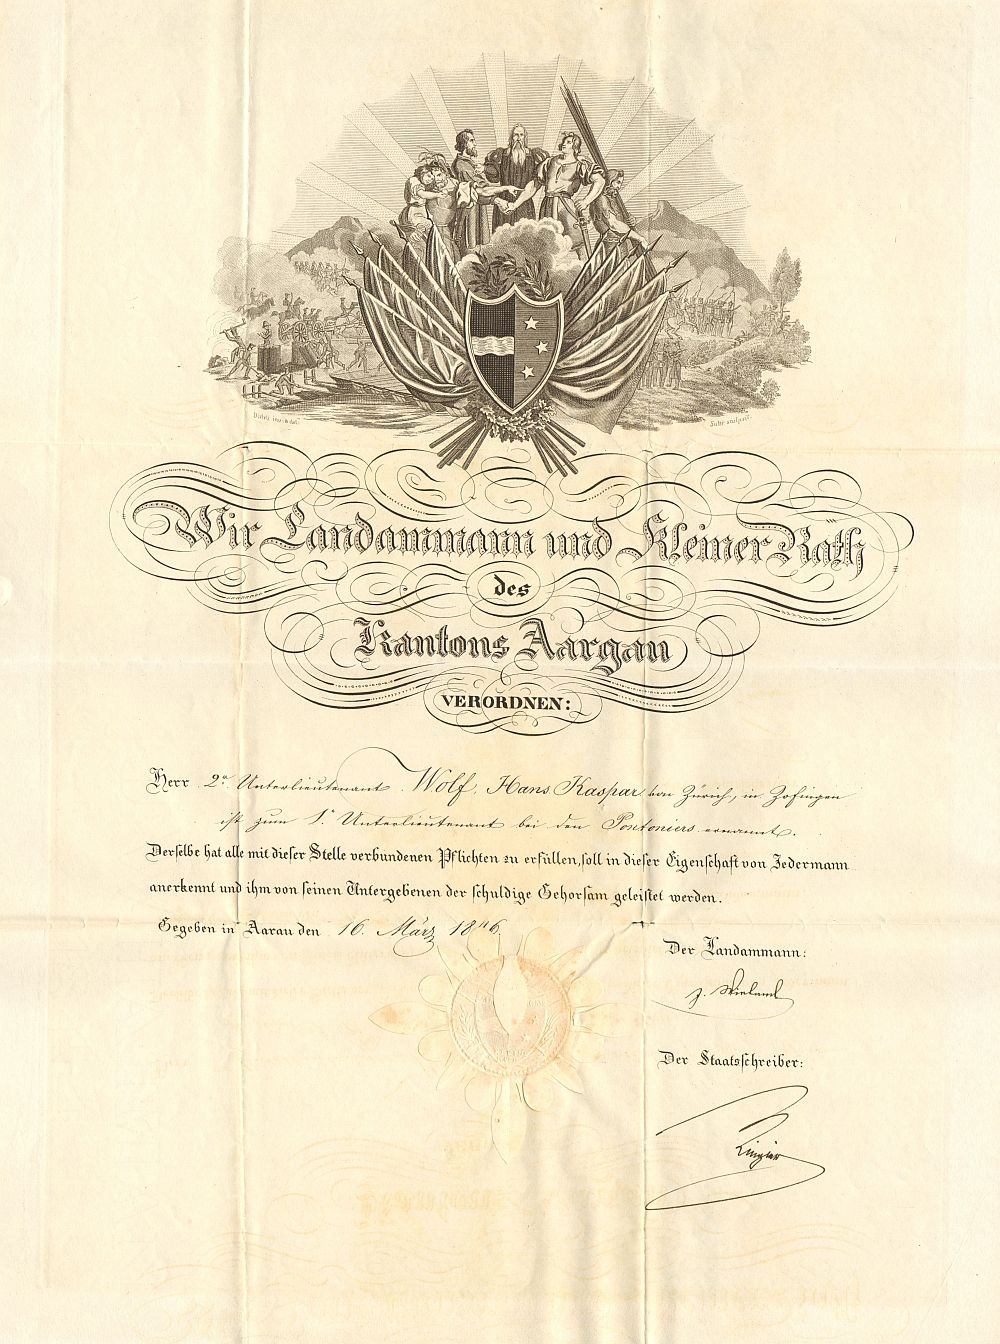 Wir Landammann und Kleiner Rath
des
Kantons Aargau
VERORDNEN:
Herr 2r Unterlieutenant Wolf, Hans Kaspar von Zürich, in Zofingen
ist zum 1r Unterlieutenant bei den Pontoniers ernannt.
Derselbe hat alle mit dieser Stelle verbundenen Pflichten zu erfüllen, soll in dieser Eigenschaft von Jedermann
anerkennt und ihm von seinen Untergebenen der schuldige Gehorsam geleistet werden.
Gegeben in Aarau den 16. März 1846.
Der Landammann:
J. Wieland
Der Staatsschreiber:
Ringier